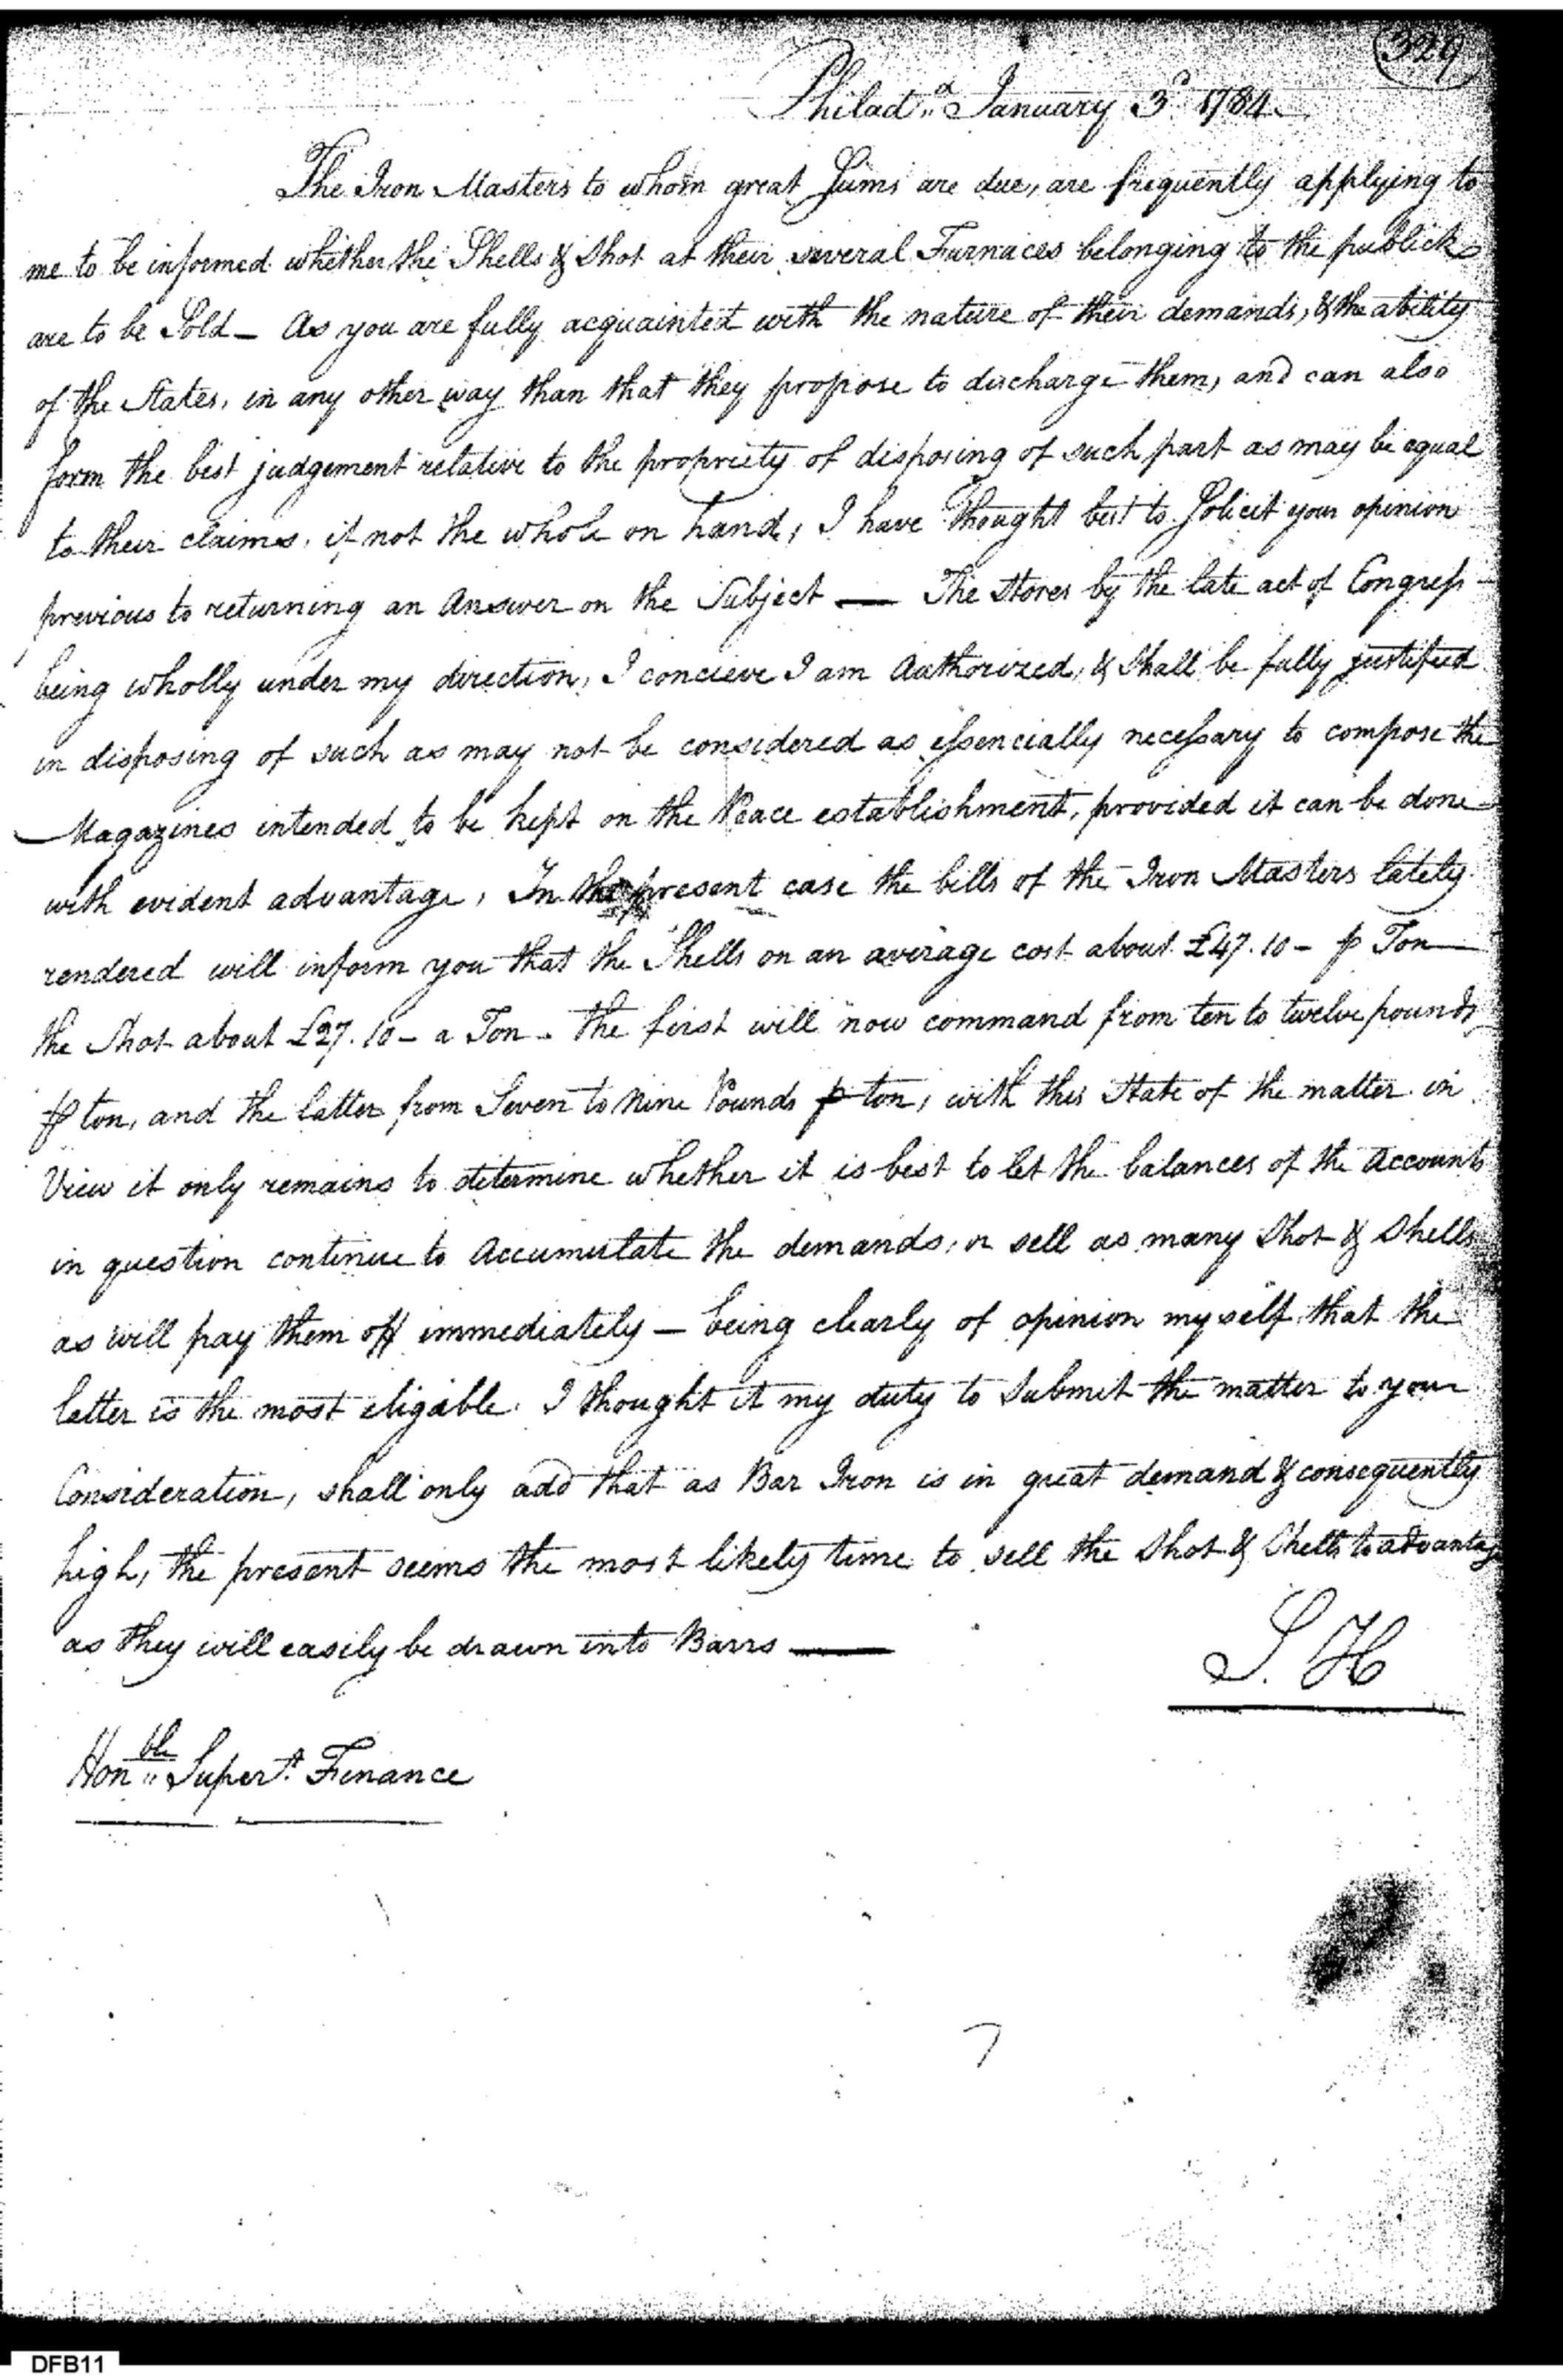 329
Philad.a January 3d 1784
The Iron Masters to whom great Sums are due, are frequently applying to
me to be informed whether the Shells & Shot at their several Furnaces belonging to the publick
are to be Sold — As you are fully acquainted with the nature of their demands, & the ability
of the States, in any other way than that they propose to discharge them, and can also
form the best judgement relative to the propriety of disposing of such part as may be equal
to their claims, if not the whole on hand; I have thought best to Solicit your opinion
previous to returning an Answer on the Subject — The Stores by the late act of Congress
being wholly under my direction, I concieve I am Authorized, & Shall be fully justified
in disposing of such as may not be considered as essencially necessary to compose the
Magazines intended to be kept on the Peace establishment, provided it can be done
with evident advantage, In the present case the bills of the Iron Masters lately
rendered will inform you that the Shells on an average cost about £47.10 – p Ton
the Shot about £27.10 – a Ton – the first will now command from ten to twelve pounds
p ton, and the latter from Seven to Nine Pounds p ton; with this State of the matter in
View it only remains to determine whether it is best to let the balances of the Accounts
in question continue to Accumulate the demands, or sell as many Shot & Shells
as will pay them off immediately — being clearly of opinion myself that the
latter is the most eligable. I thought it my duty to Submit the matter to your
Consideration, shall only add that as Bar Iron is in great demand & consequently
high, the present seems the most likely time to sell the Shot & Shells to advantage
as they will easily be drawn into Barrs —
S. H
Honble Supert. Finance
DFB11